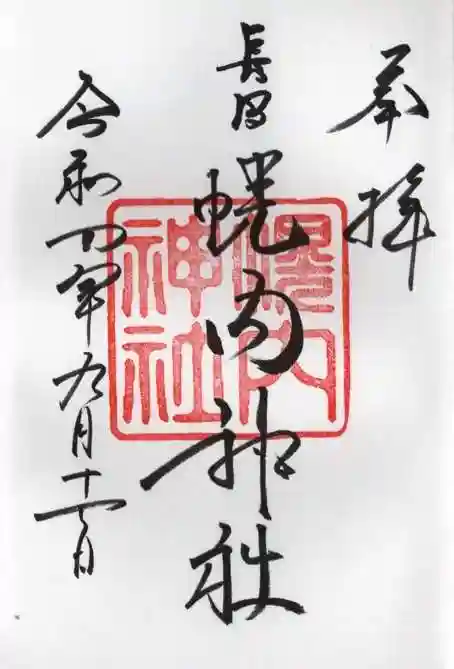 奉拝
長沼
幌内神社
令和四年九月十七日
幌内
神社